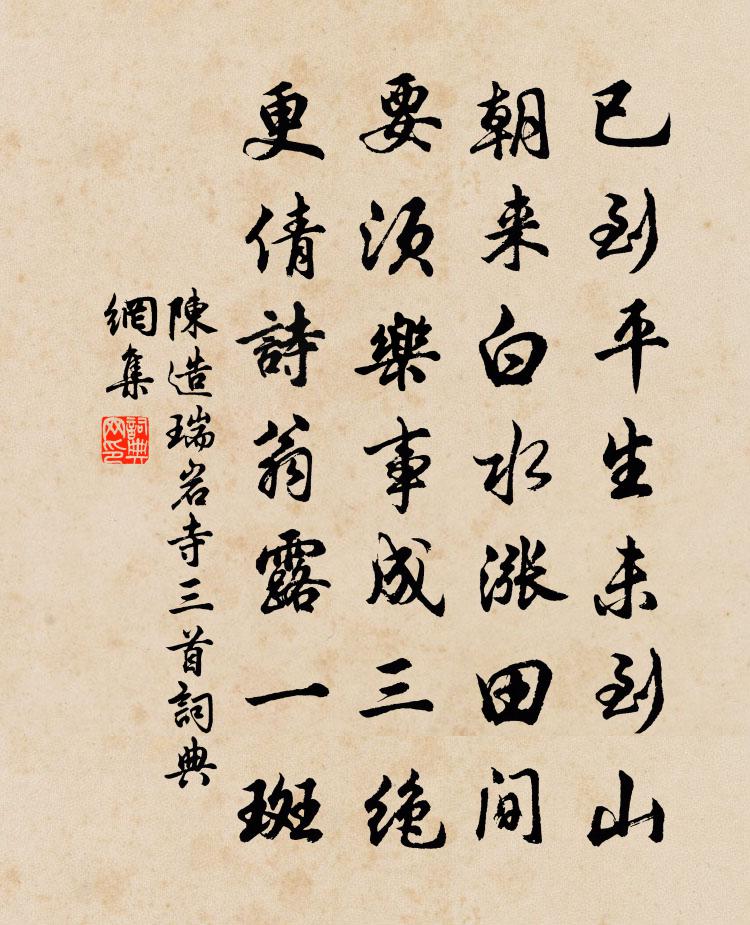 已到平生未到山
朝来白水漲田間
要須樂事成三绝
更倩詩翁露一斑
陳造瑞岩寺三首詞典
網集
詞典
网印